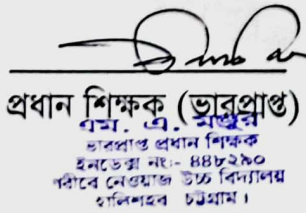 প্রধান শিক্ষক (ভারপ্রাপ্ত)
এম. এ. মঞ্জুর
ভারপ্রাপ্ত প্রধান শিক্ষক
ইনডেক্স নং:- ৪৪৮২৯০
গরীবে নেওয়াজ উচ্চ বিদ্যালয়
হালিশহর চট্টগ্রাম।